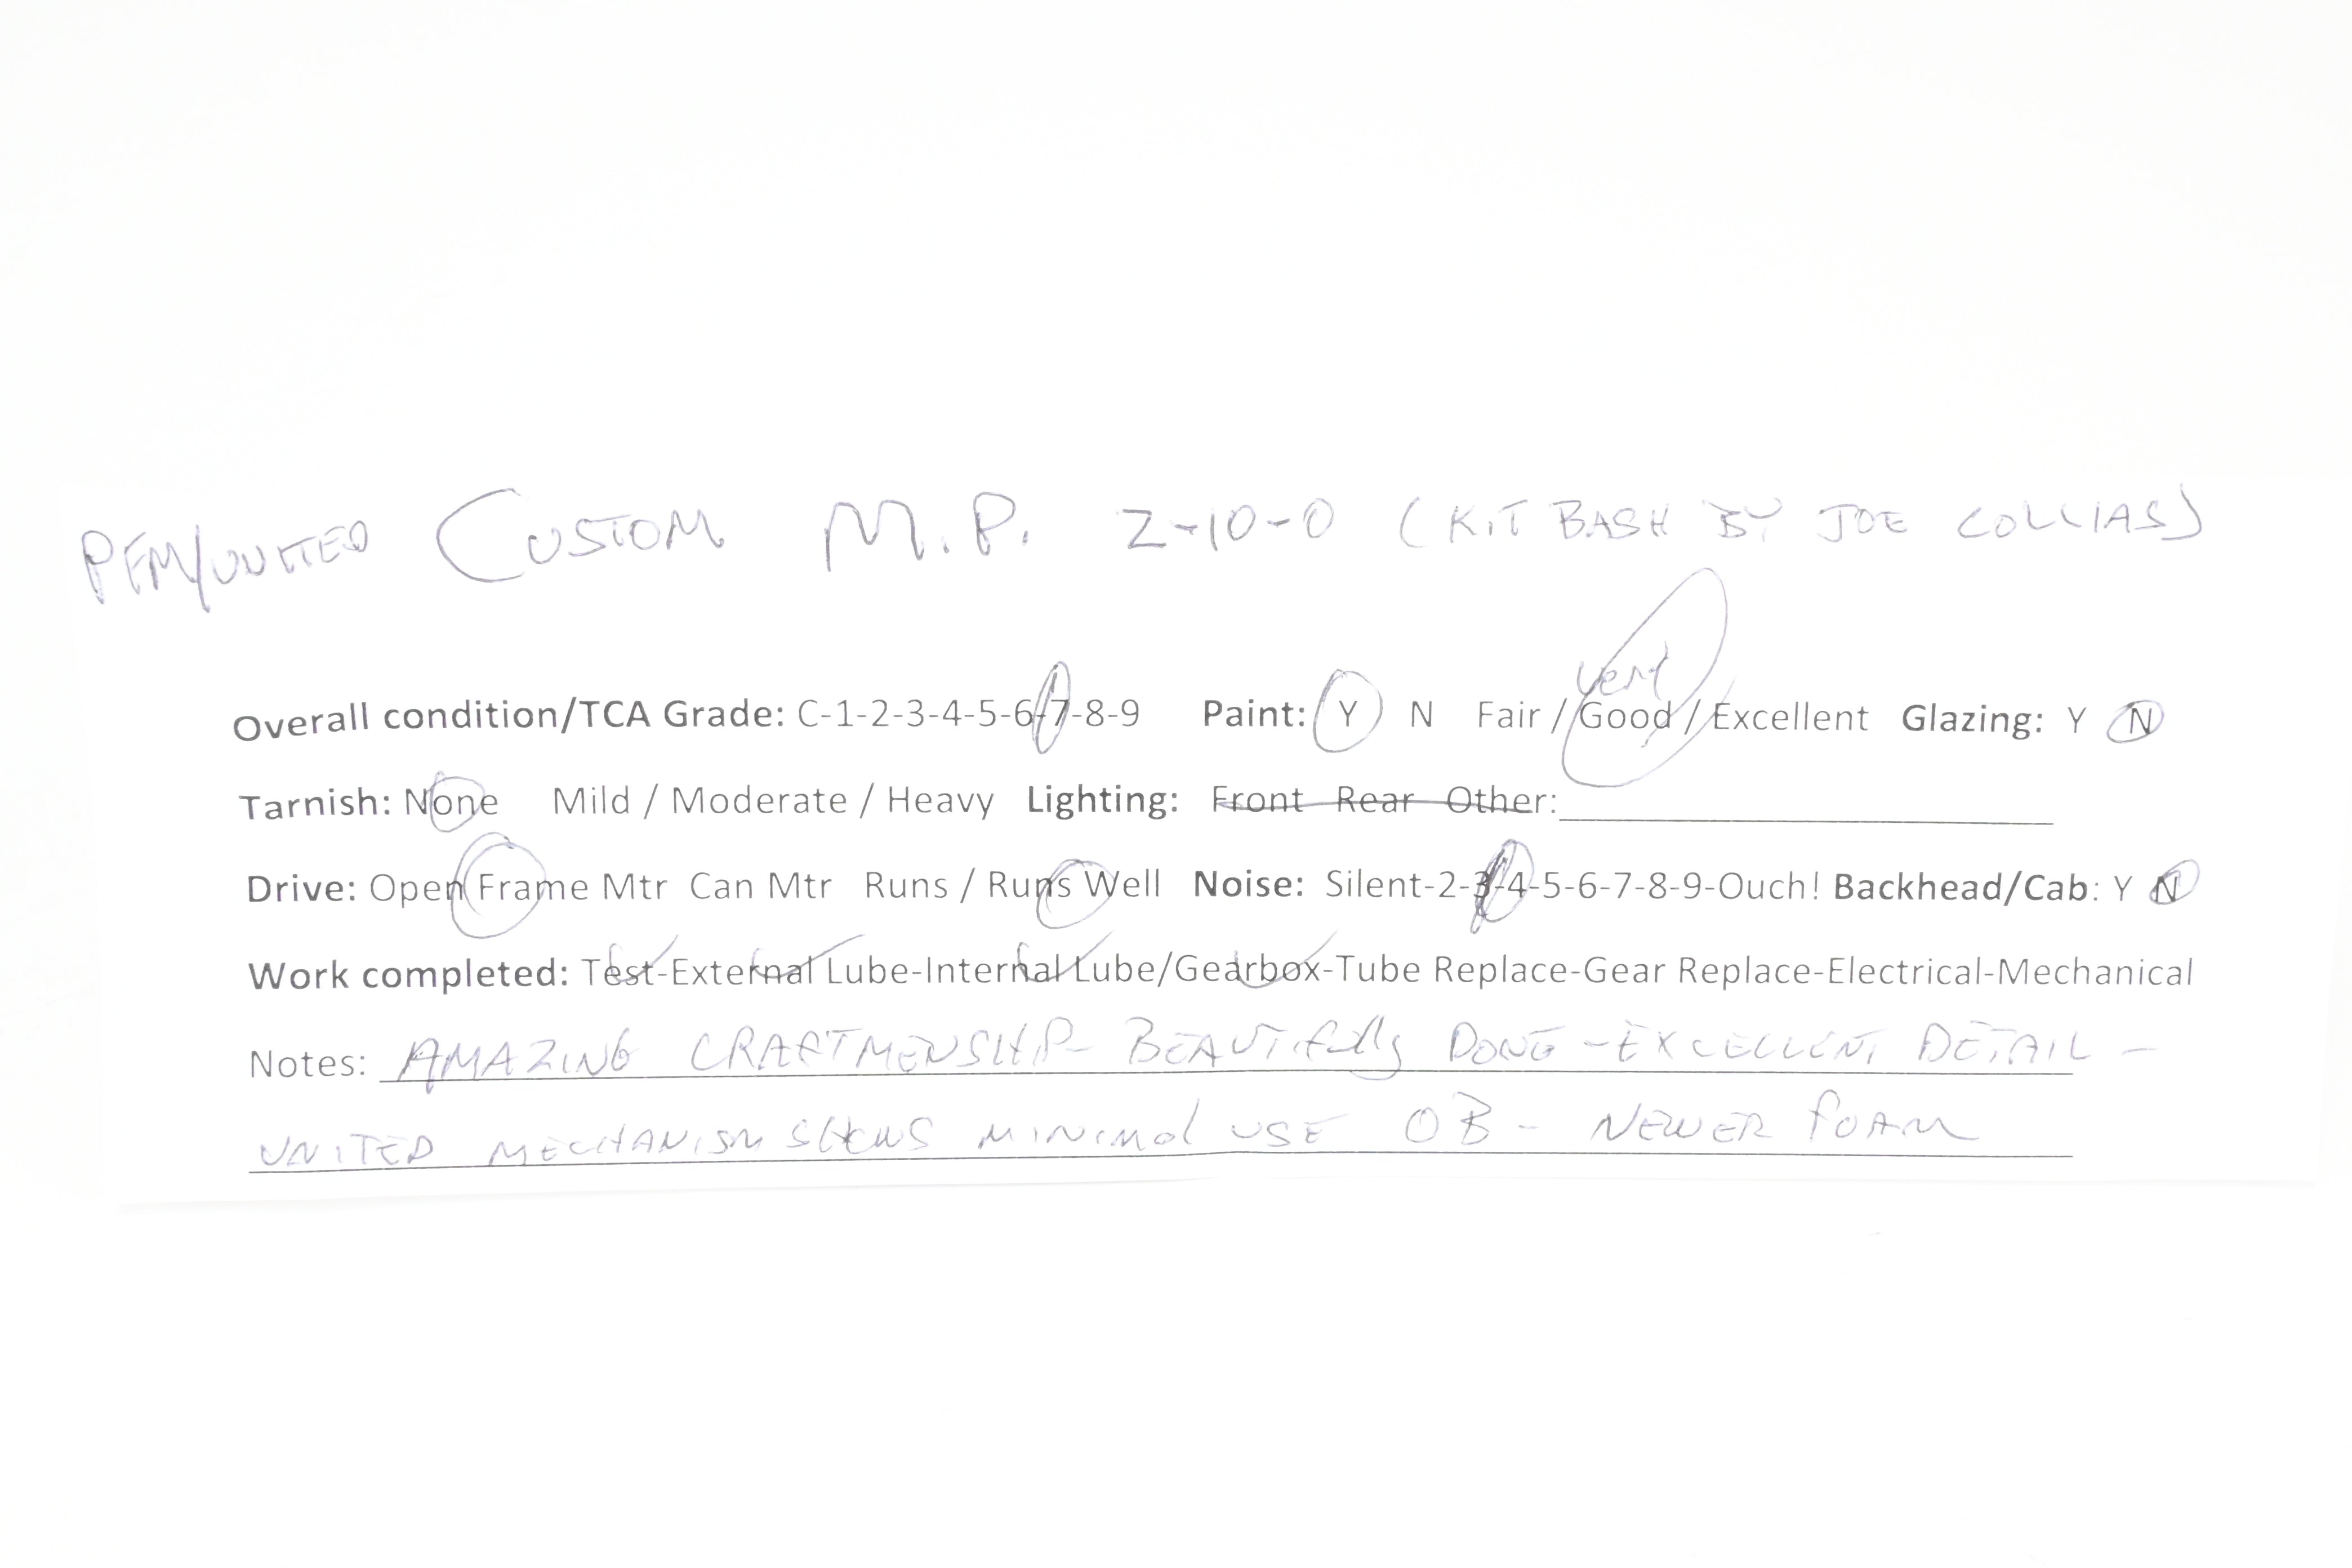 PFM/UNITED CUSTOM M.P. 2-10-0 (KIT BASH BY JOE COLLIAS)
very
Overall condition/TCA Grade: C-1-2-3-4-5-6-7-8-9 Paint: Y N Fair / Good / Excellent Glazing: Y N
Tarnish: None Mild / Moderate / Heavy Lighting: Front Rear Other:
Drive: Open Frame Mtr Can Mtr Runs / Runs Well Noise: Silent-2-3-4-5-6-7-8-9-Ouch! Backhead/Cab: Y N
Work completed: Test-External Lube-Internal Lube/Gearbox-Tube Replace-Gear Replace-Electrical-Mechanical
Notes: AMAZING CRAFTMENSHIP- BEAUTIfully DONE -EXCELLENT DETAIL -
UNITED MECHANISM SHOWS MINIMAL USE OB - NEWER FOAM